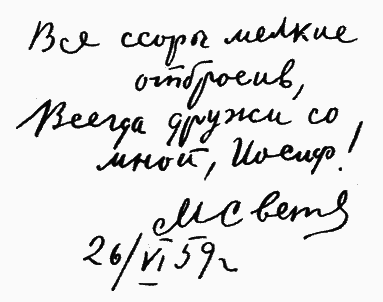 Вся ссоры мелкие
отбросив,
Всегда дружи со
мной, Иосиф!
МСветл
26/VI 59г